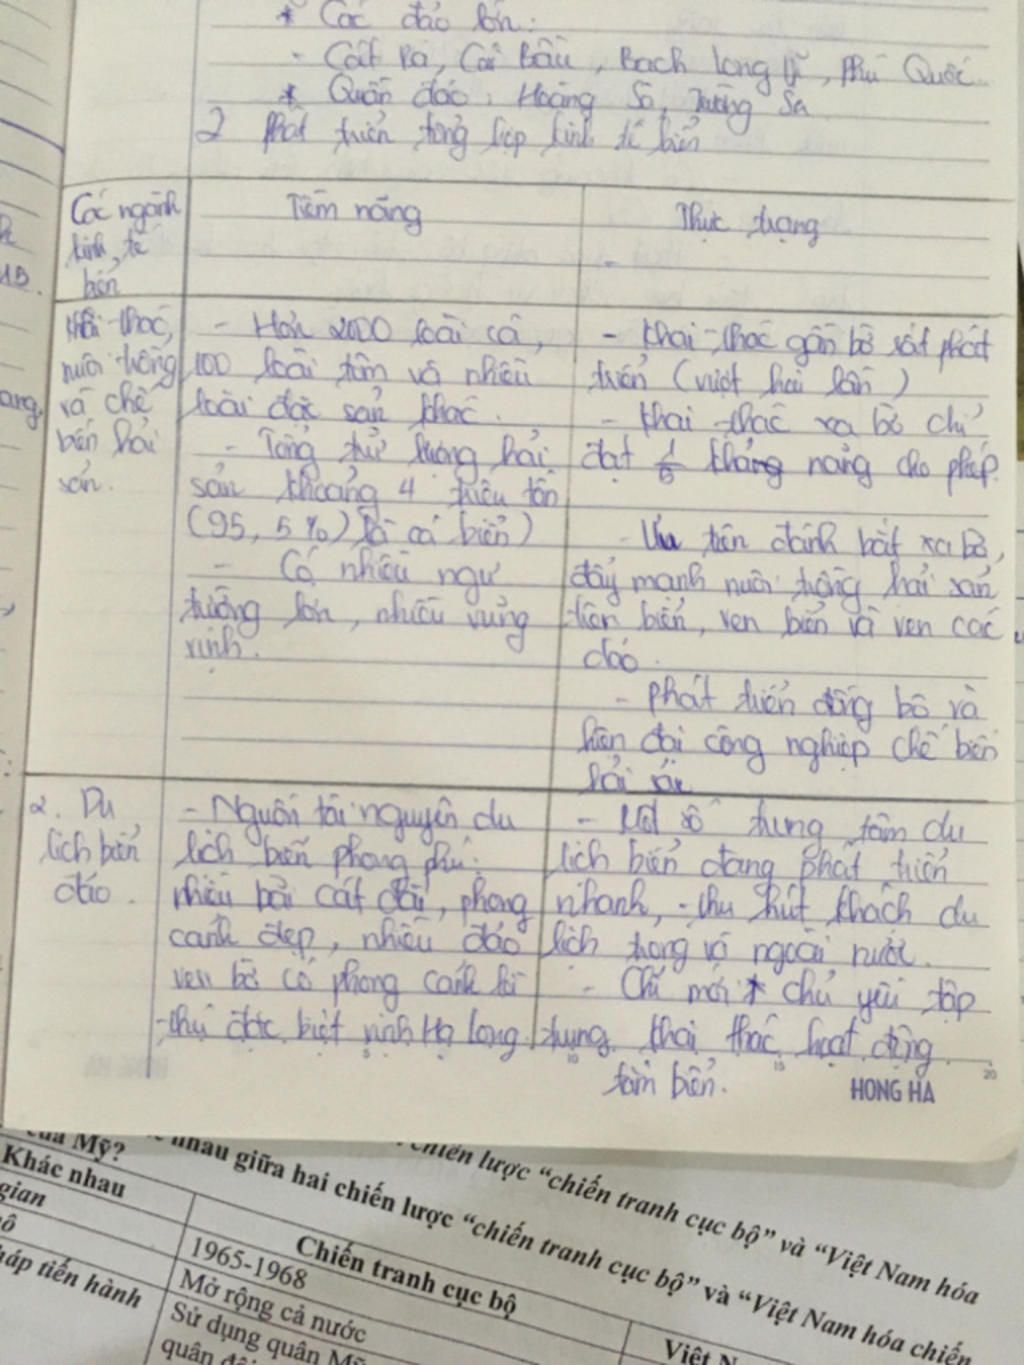 * Các đảo lớn:
- Cát Bà, Cái Bầu, Bạch Long Vĩ, Phú Quốc
* Quần đảo: Hoàng Sa, Trường Sa
2 Phát triển tổng hợp kinh tế biển
Các ngành
kinh tế
biển
Tiềm năng
Thực trạng
-
Khai thác,
nuôi trồng
và chế
biến hải
sản.
- Hơn 2000 loài cá,
100 loài tôm và nhiều
loài đặc sản khác.
- Tổng trữ lượng hải
sản khoảng 4 triệu tấn
(95,5%) là cá biển)
- Có nhiều ngư
trường lớn, nhiều vũng
vịnh.
- Khai thác gần bờ sát phát
triển (vượt hai lần)
- Khai thác xa bờ chỉ
đạt khả năng cho phép.
- Ưu tiên đánh bắt xa bờ,
đẩy mạnh nuôi trồng hải sản
trên biển, ven biển và ven các
đảo.
- Phát triển đồng bộ và
hiện đại công nghiệp chế biến
hải sản
2. Du
lịch biển
đảo.
- Nguồn tài nguyên du
lịch biển phong phú:
nhiều bãi cát dài, phong
cảnh đẹp, nhiều đảo
ven bờ có phong cảnh kì
thú đặc biệt vịnh Hạ Long.
- Một số trung tâm du
lịch biển đang phát triển
nhanh, thu hút khách du
lịch trong và ngoài nước.
- Chỉ mới chủ yếu tập
trung khai thác hoạt động
tắm biển.
5 10 15 20
HONG HA
ang,
của Mỹ?
nhau giữa hai chiến lược “chiến tranh cục bộ” và “Việt Nam hóa chiến
chiến lược “chiến tranh cục bộ” và “Việt Nam hóa
Khác nhau
Chiến tranh cục bộ
Việt N
gian
1965-1968
Mở rộng cả nước
háp tiến hành
Sử dụng quân Mỹ
quân đội